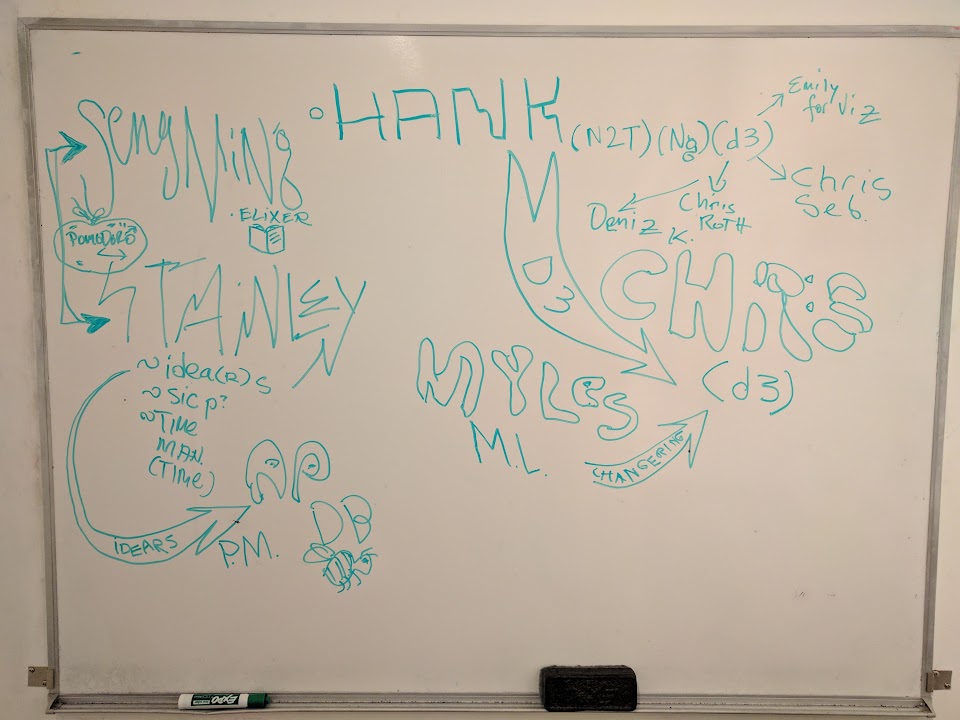 SENGMiNG
· ELiXER
POMODORO
STANLEY
~ idea(R)s
~ sicp?
~ TiME
MAN.
(TiMe)
IDEARS
P.M.
DB
HANK (N2T) (Ng) (d3)
Emily
for Viz
Chris
Seb.
Deniz K.
Chris
RoTH
D3
CHRiS
(d3)
MYLES
M.L.
CHANGEPING
EXPO